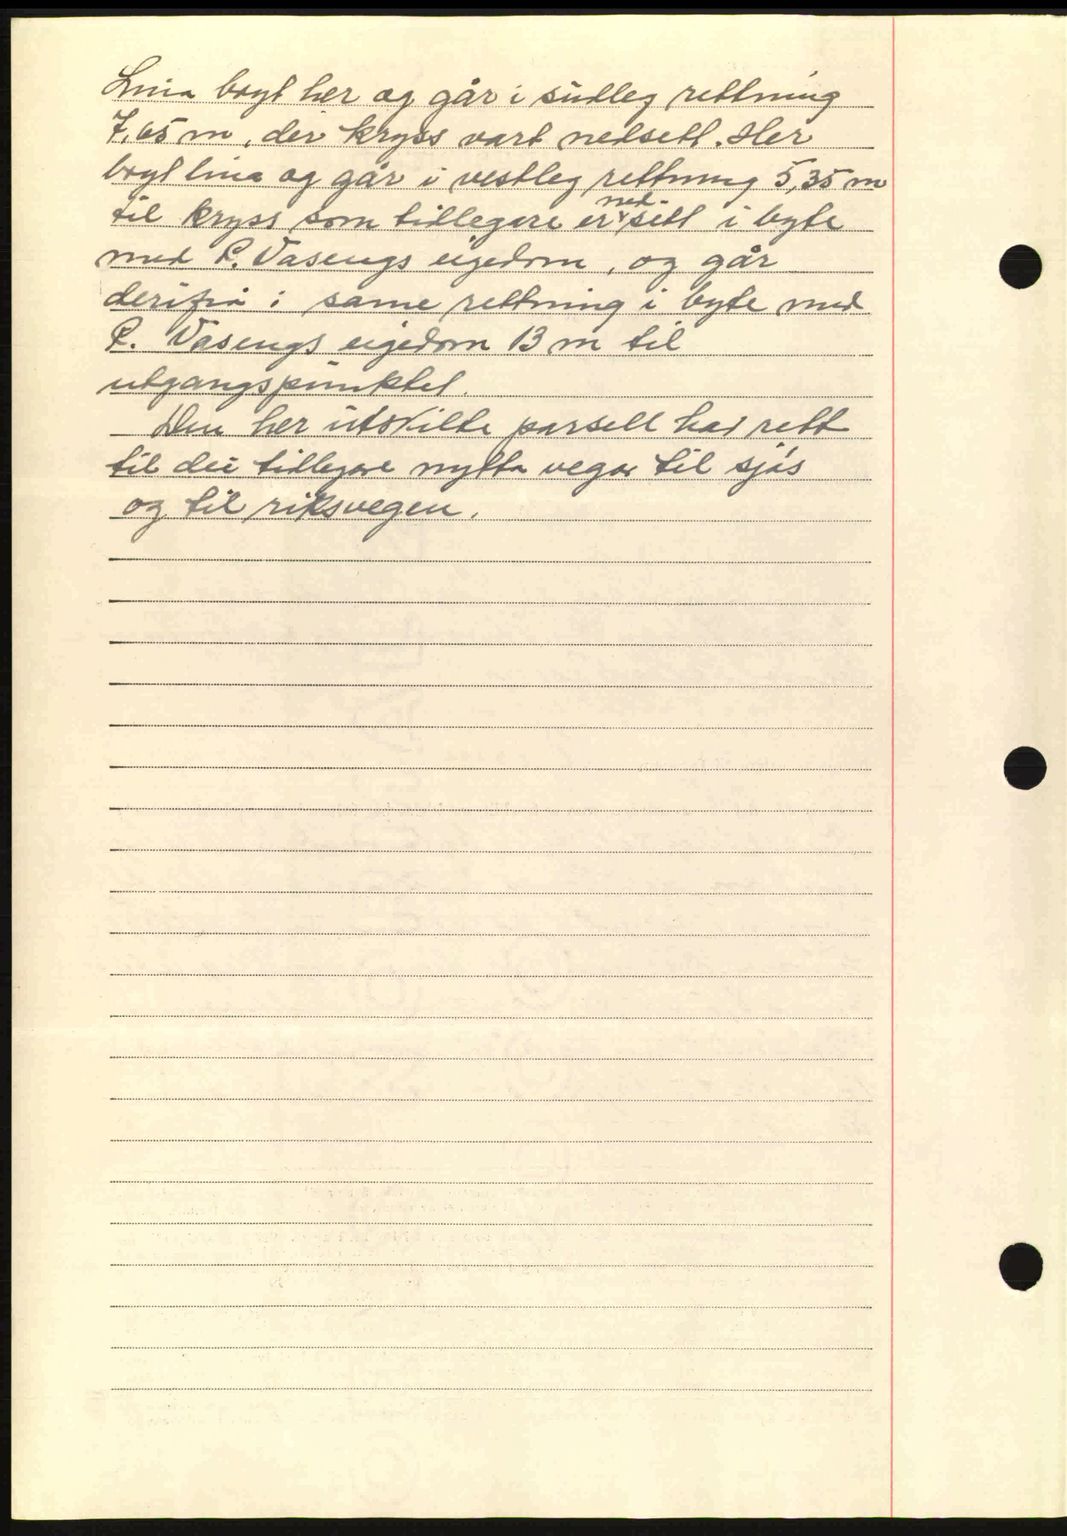 Lina bryt her og går i sudleg rettning
7,65 m, der kryss vart nedsett. Her
bryt lina og går i vestleg rettning 5,35 m
til kryss som tidlegare er ned-sett i byte
med P. Vasengs eigedom, og går
derifrå i same rettning i byte med
P. Vasengs eigedom 13 m til
utgangspunktet.
Den her utskilte parsell har rett
til dei tidlegare nytta vegar til sjøs
og til riksvegen.